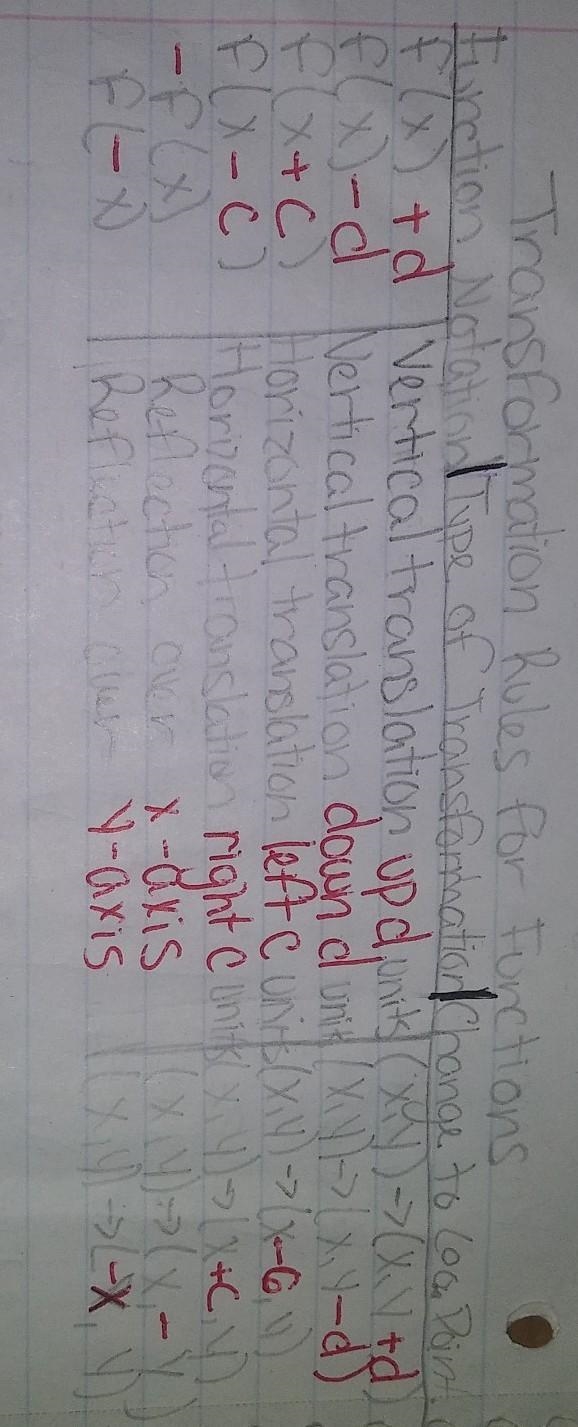 Transformation Rules for Functions
Function Notation | Type of Transformation | Change to Coor. Point
F(x) + d Vertical translation up d units (x,y) -> (x, y + d)
F(x) - d Vertical translation down d unit (x,y) -> (x, y - d)
F(x + c) Horizontal translation left c units (x,y) -> (x - c, y)
F(x - c) Horizontal translation right c units (x,y) -> (x + c, y)
-F(x) Reflection over x-axis (x,y) -> (x, -y)
F(-x) Reflection over y-axis (x,y) -> (-x, y)